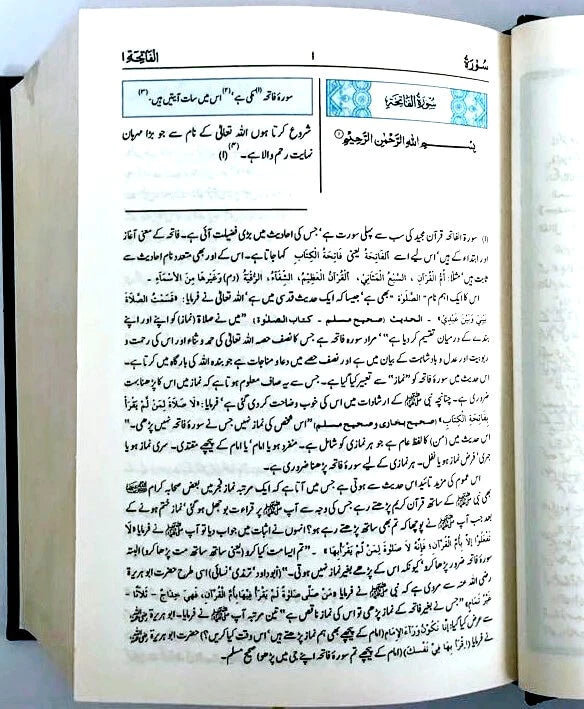 سُوْرَةُ
۱
اَلْفَاتِحَةِ ۱
سُوْرَةُ الْفَاتِحَةِ
بِسْمِ اللهِ الرَّحْمٰنِ الرَّحِيْمِ ①
سورۂ فاتحہ (۱) مکی ہے' (۲) اس میں سات آیتیں ہیں۔ (۳)
شروع کرتا ہوں اللہ تعالیٰ کے نام سے جو بڑا مہربان
نہایت رحم والا ہے۔ (۴) (۱)
(۱) سورۃ الفاتحہ قرآن مجید کی سب سے پہلی سورت ہے' جس کی احادیث میں بڑی فضیلت آئی ہے۔ فاتحہ کے معنی آغاز
اور ابتدا کے ہیں' اس لیے اسے اَلْفَاتِحَةُ یعنی فَاتِحَةُ الْكِتَابِ کہا جاتا ہے۔ اس کے اور بھی متعدد نام احادیث سے
ثابت ہیں' مثلاً: اُمُّ الْقُرْآنِ ، السَّبْعُ الْمَثَانِي، اَلْقُرْآنُ الْعَظِيْمُ، الشِّفَاءُ، الرُّقْيَةُ (دم) وَغَيْرُهَا مِنَ الْأَسْمَآءِ ۔
اس کا ایک اہم نام "الصَّلوٰة" بھی ہے' جیسا کہ ایک حدیث قدسی میں ہے' اللہ تعالیٰ نے فرمایا: «قَسَمْتُ الصَّلَاةَ
بَيْنِي وَبَيْنَ عَبْدِيْ» ۔ الحدیث (صحیح مسلم ۔ کتاب الصلوۃ) "میں نے صلاۃ (نماز) کو اپنے اور اپنے
بندے کے درمیان تقسیم کر دیا ہے"' مراد سورۂ فاتحہ ہے جس کا نصف حصہ اللہ تعالیٰ کی حمد و ثناء اور اس کی رحمت و
ربوبیت اور عدل و بادشاہت کے بیان میں ہے اور نصف حصے میں دعا و مناجات ہے جو بندہ اللہ کی بارگاہ میں کرتا ہے۔
اس حدیث میں سورۂ فاتحہ کو "نماز" سے تعبیر کیا گیا ہے۔ جس سے یہ صاف معلوم ہوتا ہے کہ نماز میں اس کا پڑھنا بہت
ضروری ہے۔ چنانچہ نبی ﷺ کے ارشادات میں اس کی خوب وضاحت کر دی گئی ہے' فرمایا: «لَا صَلَاةَ لِمَنْ لَّمْ يَقْرَأْ
بِفَاتِحَةِ الْكِتَابِ» (صحیح بخاری و صحیح مسلم) "اس شخص کی نماز نہیں جس نے سورۂ فاتحہ نہیں پڑھی۔"
اس حدیث میں (من) کا لفظ عام ہے جو ہر نمازی کو شامل ہے۔ منفرد ہو یا امام' یا امام کے پیچھے مقتدی۔ سری نماز ہو یا
جہری' فرض نماز ہو یا نفل۔ ہر نمازی کے لیے سورۂ فاتحہ پڑھنا ضروری ہے۔
اس عموم کی مزید تائید اس حدیث سے ہوتی ہے جس میں آتا ہے کہ ایک مرتبہ نماز فجر میں بعض صحابہ کرام
بھی نبی ﷺ کے ساتھ قرآن کریم پڑھتے رہے جس کی وجہ سے آپ ﷺ پر قراءت بوجھل ہو گئی' نماز ختم ہونے کے
بعد جب آپ ﷺ نے پوچھا کہ تم بھی ساتھ پڑھتے رہے ہو؟ انہوں نے اثبات میں جواب دیا تو آپ ﷺ نے فرمایا «لَا
تَفْعَلُوْا إِلَّا بِأُمِّ الْقُرْآنِ؛ فَإِنَّهُ لَا صَلٰوةَ لِمَنْ لَّمْ يَقْرَأْ بِهَا» ۔ "تم ایسا مت کیا کرو (یعنی ساتھ ساتھ مت پڑھا کرو) البتہ
سورۂ فاتحہ ضرور پڑھا کرو' کیونکہ اس کے پڑھے بغیر نماز نہیں ہوتی۔" (ابوداود' ترمذی' نسائی) اسی طرح حضرت ابو ہریرۃ
رضی اللہ عنہ سے مروی ہے کہ نبی ﷺ نے فرمایا «مَنْ صَلّٰى صَلٰوةً لَمْ يَقْرَأْ فِيْهَا بِأُمِّ الْقُرْآنِ، فَهِيَ خِدَاجٌ - ثَلَاثًا -
غَيْرُ تَمَامٍ» "جس نے بغیر فاتحہ کے نماز پڑھی تو اس کی نماز ناقص ہے" تین مرتبہ آپ ﷺ نے فرمایا۔ ابو ہریرۃ
سے عرض کیا گیا: إِنَّا نَكُوْنُ وَرَآءَ الْإِمَامِ (امام کے پیچھے بھی ہم نماز پڑھتے ہیں' اس وقت کیا کریں؟) حضرت ابو ہریرۃ
نے فرمایا (اِقْرَأْ بِهَا فِيْ نَفْسِكَ) (امام کے پیچھے تم سورۂ فاتحہ اپنے جی میں پڑھو) صحیح مسلم۔